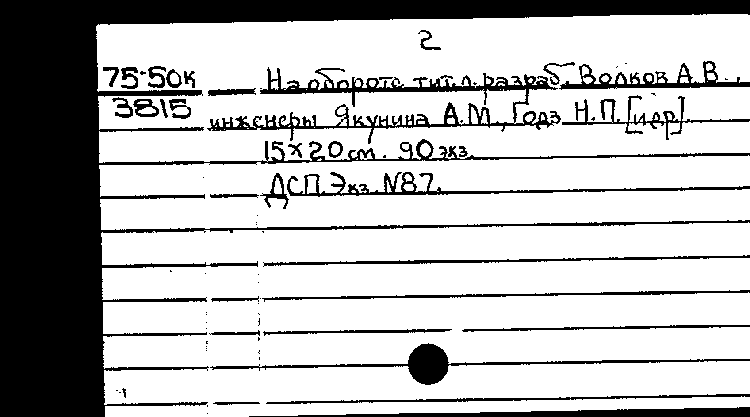 2
75-50к На обороте тит.л. разраб. Волков А.В.,
3815 инженеры Якунина А.М., Годз Н.П. [и др].
15х20 см. 90 экз.
ДСП. Экз. N87.